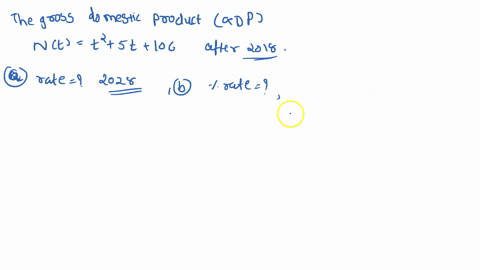 The gross domestic product (GDP)
N(t) = t²+5t+106 after 2018.
(a) rate=? 2028 , (b) % rate=? ,